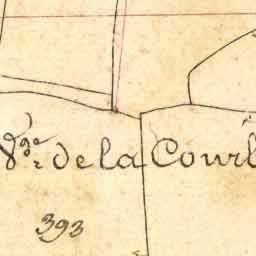 de la Courb
393